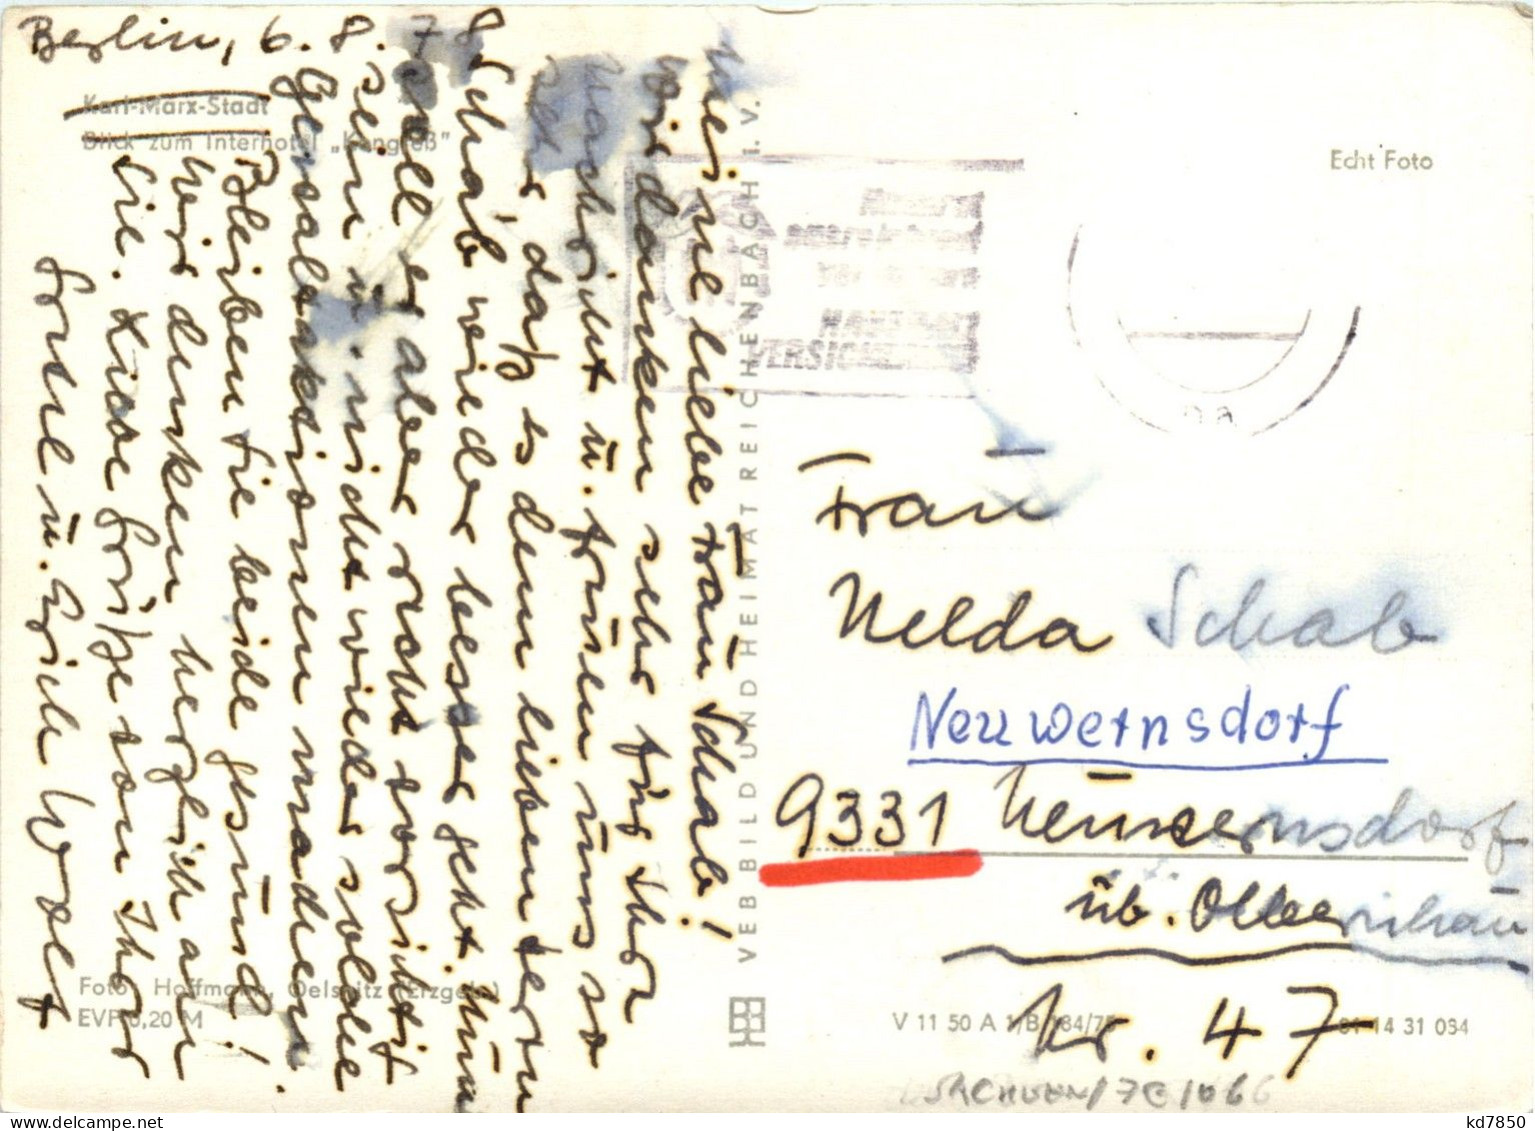 Berlin, 6. 8. 78
Karl-Marx-Stadt
Blick zum Interhotel „Kongreß"
Echt Foto
Meine liebe Frau Schab!
Wir danken sehr für Ihre
Nachricht u. freuen uns so
sehr, daß es dem lieben Herrn
Schab wieder besser geht. Nun
soll er aber recht vorsichtig
sein u. nicht wieder solche
Gewaltaktionen machen.
Bleiben Sie beide gesund!
Wir denken herzlich an
Sie. Liebe Grüße von Ihrer
u. Erich Wolf
VEB BILD UND HEIMAT REICHENBACH i. V.
VERSICHERUNG
Frau
Nelda Schab
Neuwernsdorf
9331 Neuwernsdorf
üb. Olbernhau
Nr. 47
Foto: Hoffmann, Oelsnitz (Erzgeb.)
EVP 0,20 M
V 11 50 A 1/B 184/75 01 14 31 034
SACHSEN/7E/066
delcampe.net
kd7850